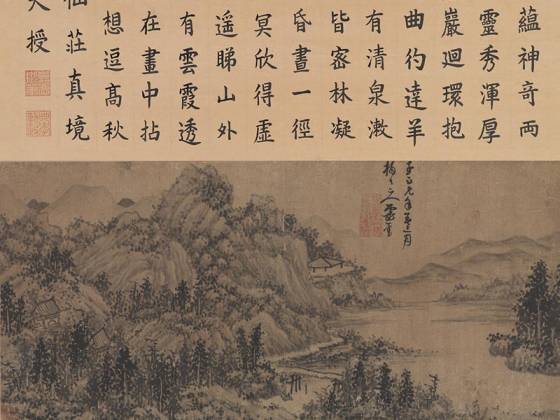 蘊神奇兩
靈秀渾厚
巖迴環抱
曲彴達羊
有清泉漱
皆密林凝
昏晝一徑
冥欣得虛
遙睇山外
有雲霞透
在畫中拈
想逗高秋
仙莊真境
授